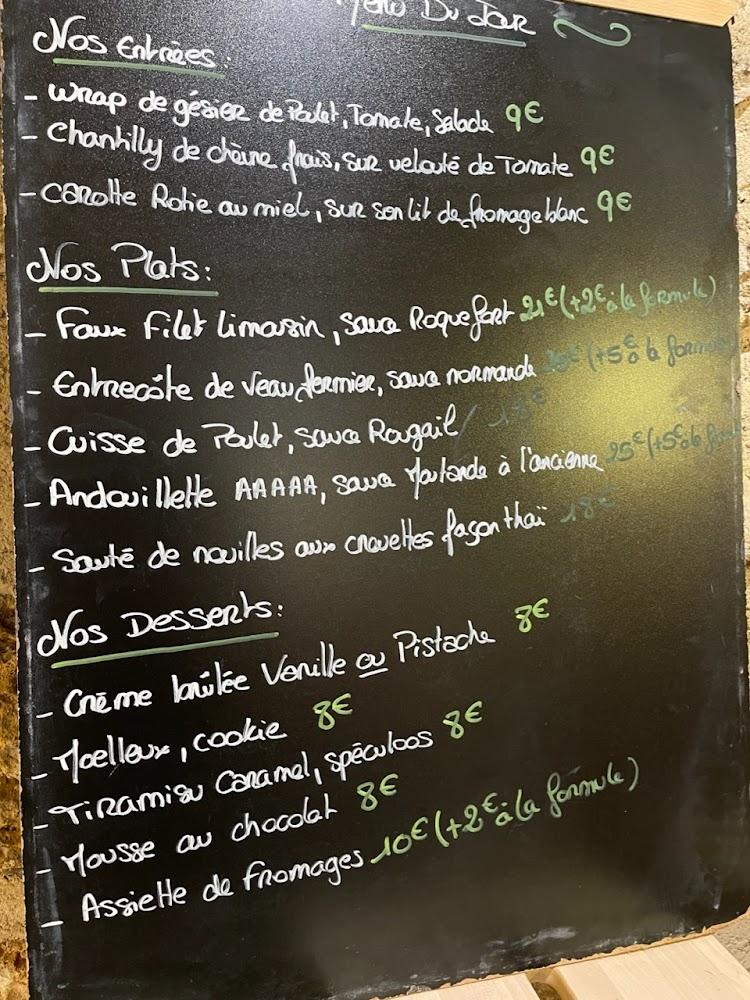 Menu Du Jour
Nos Entrées:
- Wrap de gésier de Poulet, Tomate, Salade 9€
- Chantilly de chèvre frais, sur velouté de Tomate 9€
- Carotte Rotie au miel, sur son lit de fromage blanc 9€
Nos Plats:
- Faux Filet Limousin, sauce Roquefort 21€ (+2€ à la formule)
- Entrecôte de Veau fermier, sauce normande (+5€ à la formule)
- Cuisse de Poulet, sauce Rougail / 18€
- Andouillette AAAAA, sauce Moutarde à l'ancienne 25€ (+5€ à la form
- Sauté de nouilles aux crevettes façon thaï 18€
Nos Desserts:
- Crème brûlée Vanille ou Pistache 8€
- Moelleux, cookie 8€
- Tiramisu Caramel, spéculoos 8€
- Mousse au chocolat 8€
- Assiette de fromages 10€ (+2€ à la formule)